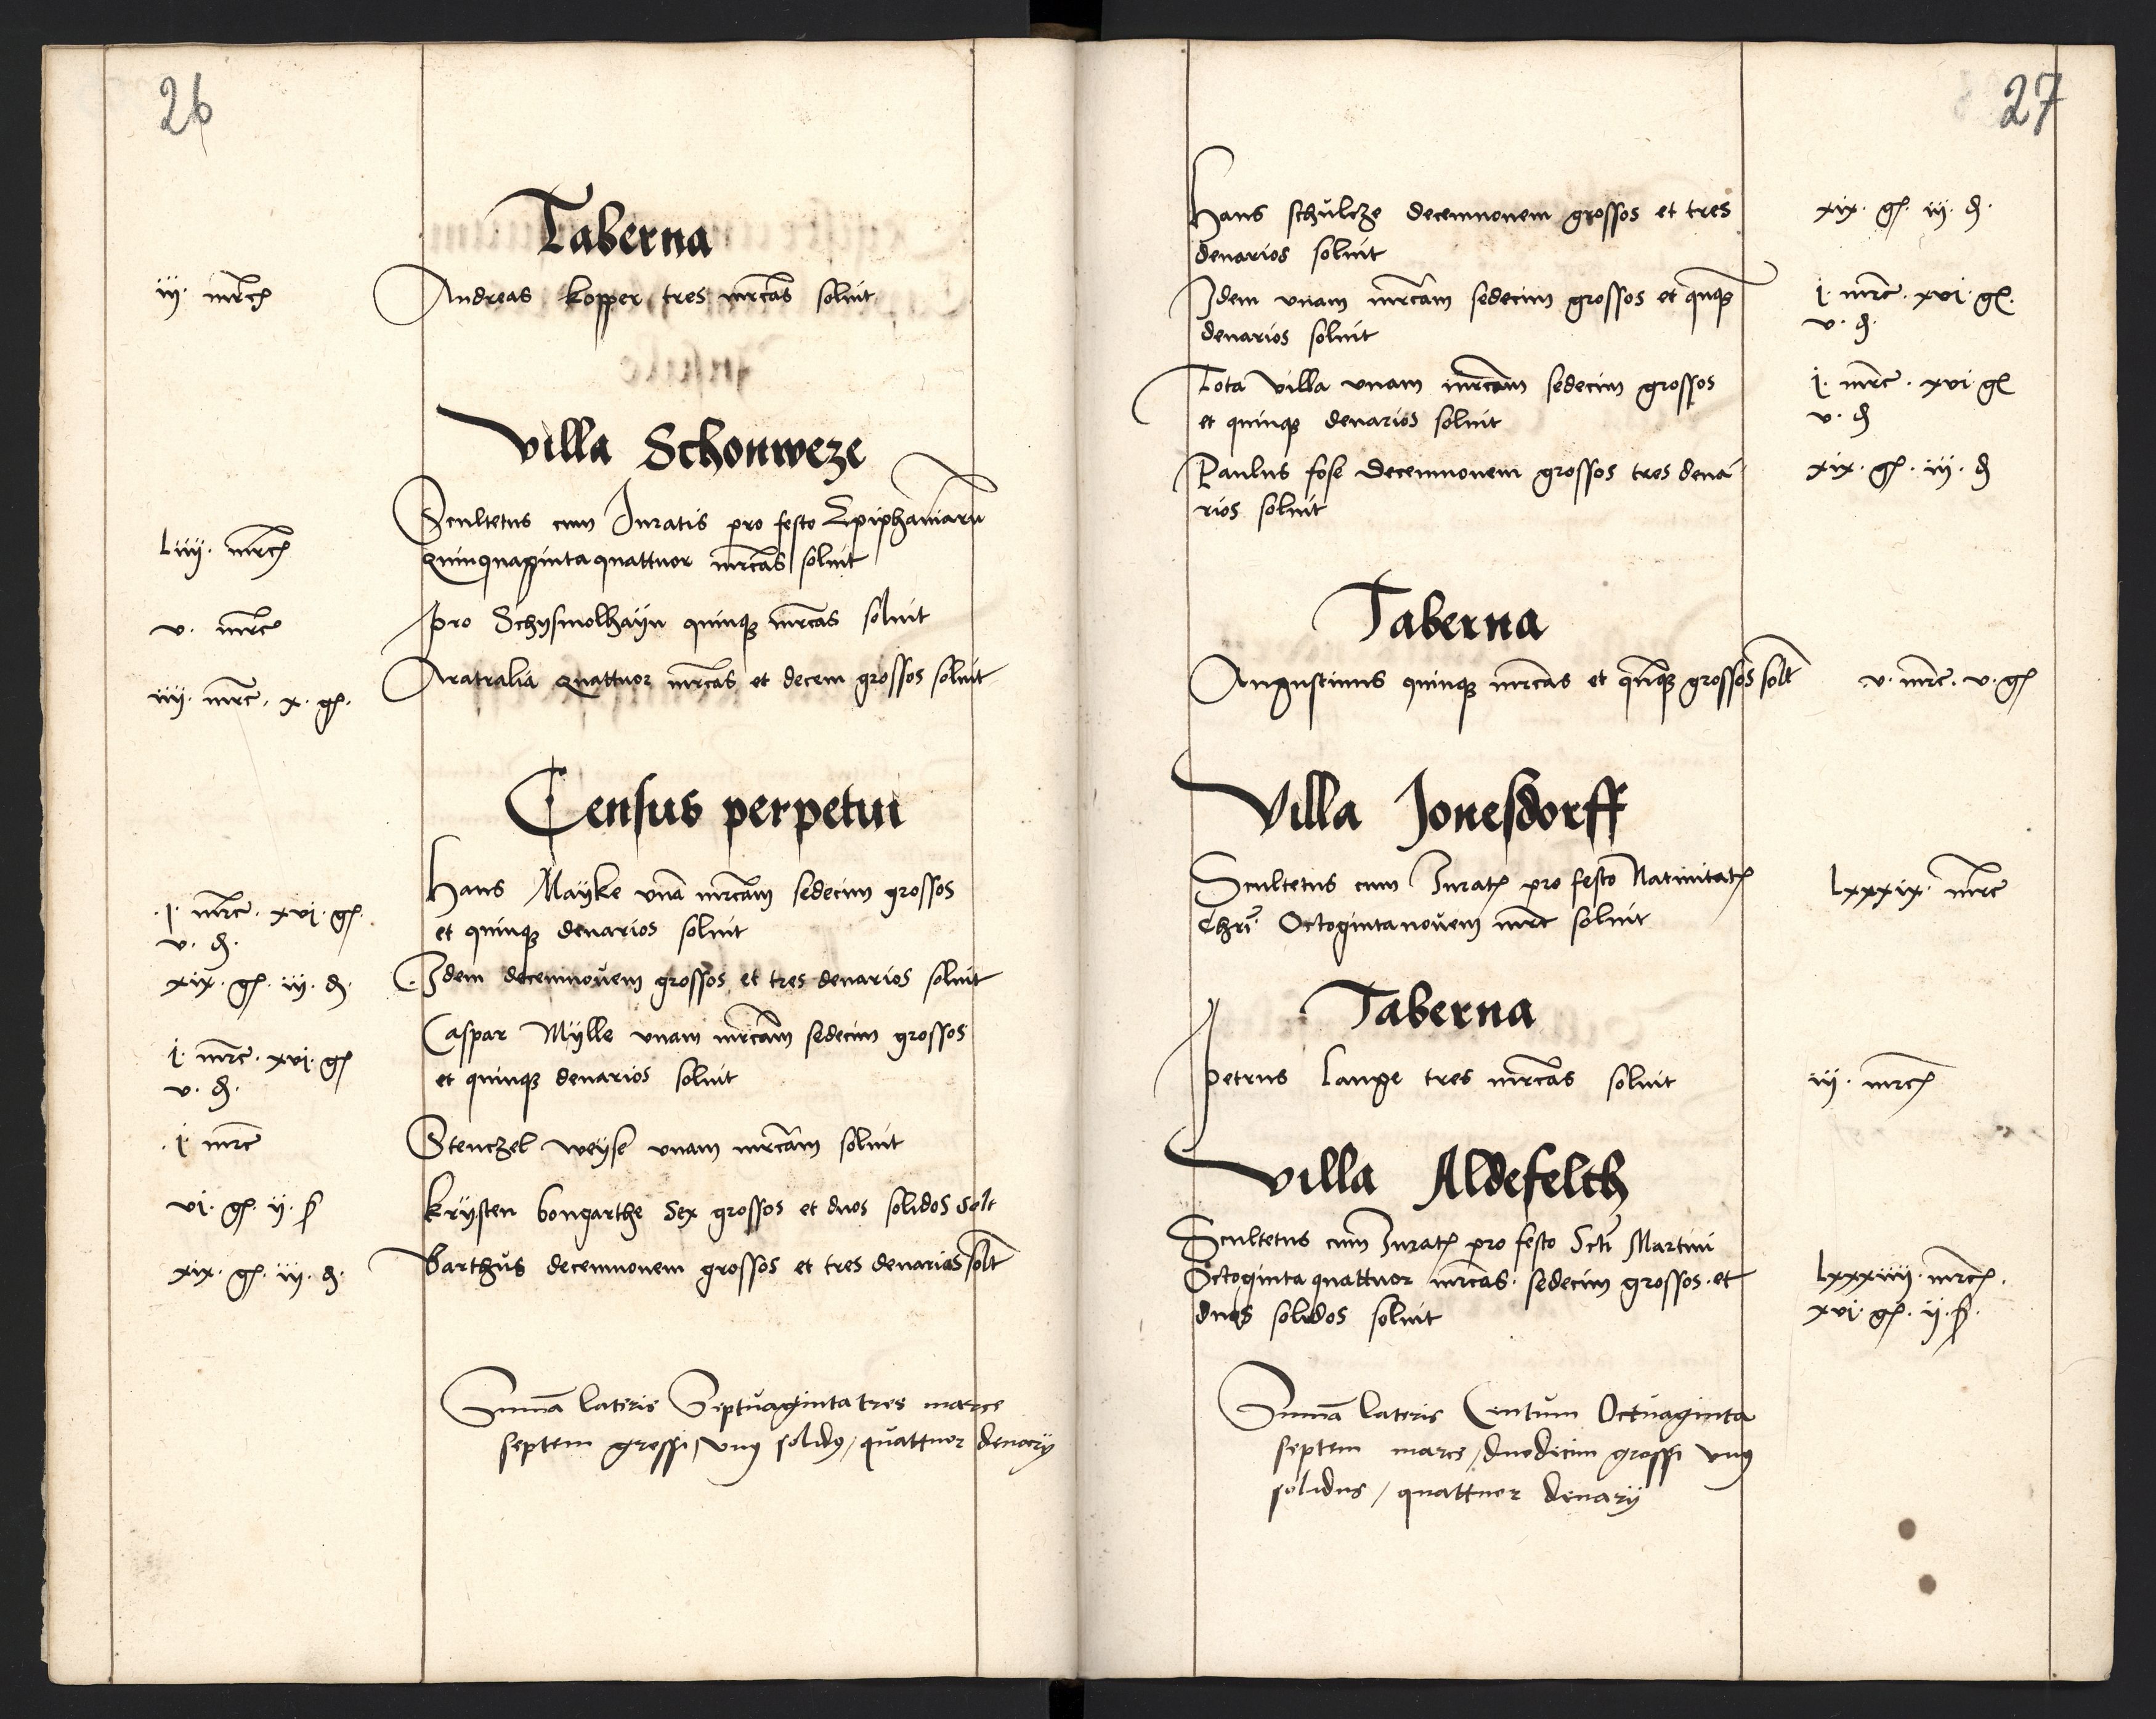 26
Taberna
iij. mrc Andreas kopper tres mrcas soluit
villa Schonweze
Scultetus cum Juratis pro festo Epiphaniaru
Liiij. mrc quinquaginta quattuor mrcas soluit
v. mrc pro Schysmolhayn quinqz mrcas soluit
iiij. mrc. x. gs. Aratralia quattuor mrcas et decem grossos soluit
Census perpetui
.j. mrc. xvi. gs. Hans Mayke vna mrcam sedecim grossos
v. d. et quinqz denarios soluit
xix. gs. iij. d. Idem decemnouem grossos et tres denarios soluit
j. mrc. xvi. gs Caspar Mylle vnam mrcam sedecim grossos
v. d. et quinqz denarios soluit
.j. mrc Stenczel weyse vnam mrcam soluit
vi. gs. ij. ß krysten bongarthe Sex grossos et duos solidos solt
xix. gs. iij. d. Barthus decemnouem grossos et tres denarios solt
Suma lateris Septuaginta tres marce
septem grossi / vnus solidus / quattuor denarij
27
Hans schulcze decemnouem grossos et tres xix. gs. iij. d.
denarios soluit
Idem vnam mrcam sedecim grossos et quiqz j. mrc. xvi. gs.
denarios soluit v. d.
Tota villa vnam mrcam sedecim grossos j. mrc. xvi. gs
et quinqz denarios soluit v. d
Paulus fose decemnouem grossos tres dena xix. gs. iij. d
rios soluit
Taberna
Augustinus quinqz mrcas et quiqz grossos solt v. mrc. v. gs
Villa Jonesdorff
Scultetus cum Jurats pro festo Natiuitats Lxxxix. mrc
Chri Octogintanouem mrc soluit
Taberna
petrus Lange tres mrcas soluit iij. mrc
villa Aldefelth
Scultetus cum Jurats pro festo Scti Martini
Octoginta quattuor mrcas. sedecim grossos. et Lxxxiiij. mrc.
duos solidos soluit xvi. gs. ij. ß.
Suma lateris Centum Octuaginta
septem marce / duodecim grossi vnus
solidus / quattuor denarij